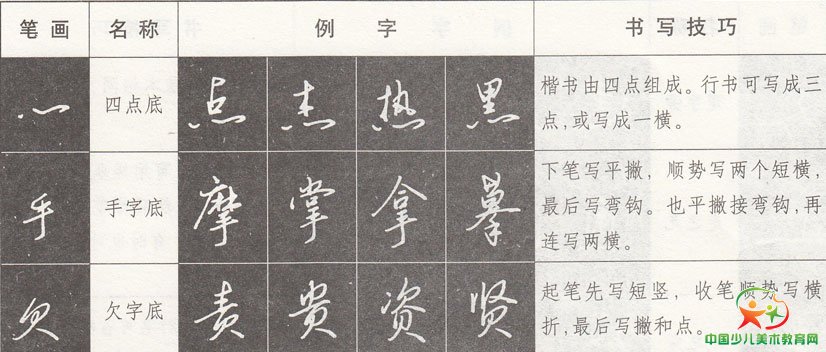 笔画 名称 例字 书写技巧
灬 四点底 点 杰 热 黑 楷书由四点组成。行书可写成三
点,或写成一横。
手 手字底 摩 掌 拿 摹 下笔写平撇，顺势写两个短横，
最后写弯钩。也平撇接弯钩,再
连写两横。
欠字底 责 贵 资 贤 起笔先写短竖，收笔顺势写横
折,最后写撇和点。
中国少儿美术教育网